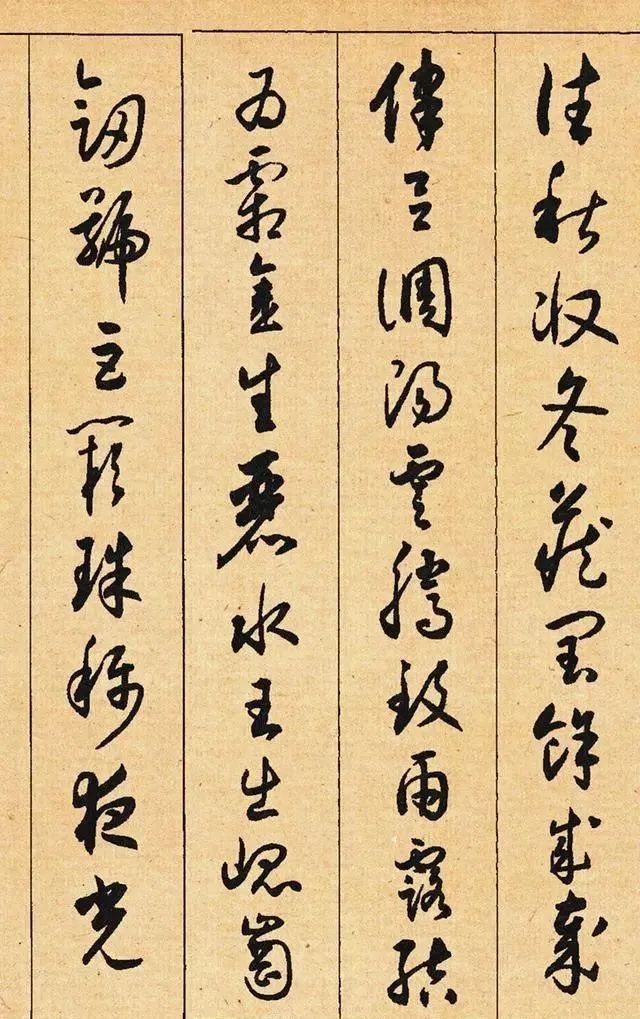 往秋收冬藏閏餘成歲
律呂調陽雲騰致雨露結
為霜金生麗水玉出崐崗
劒號巨闕珠稱夜光